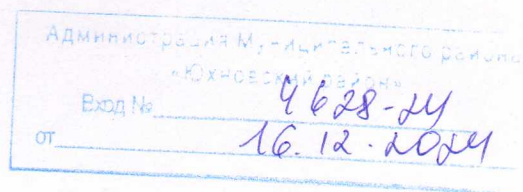 Администрация Муниципального района
«Юхновский район»
Вход № 4628-24
от 16.12.2024